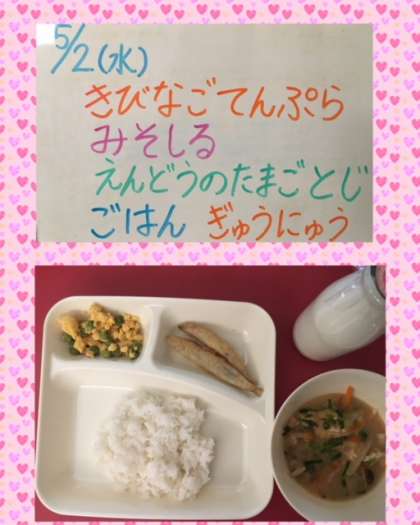 5/2(水)
きびなごてんぷら
みそしる
えんどうのたまごとじ
ごはん ぎゅうにゅう